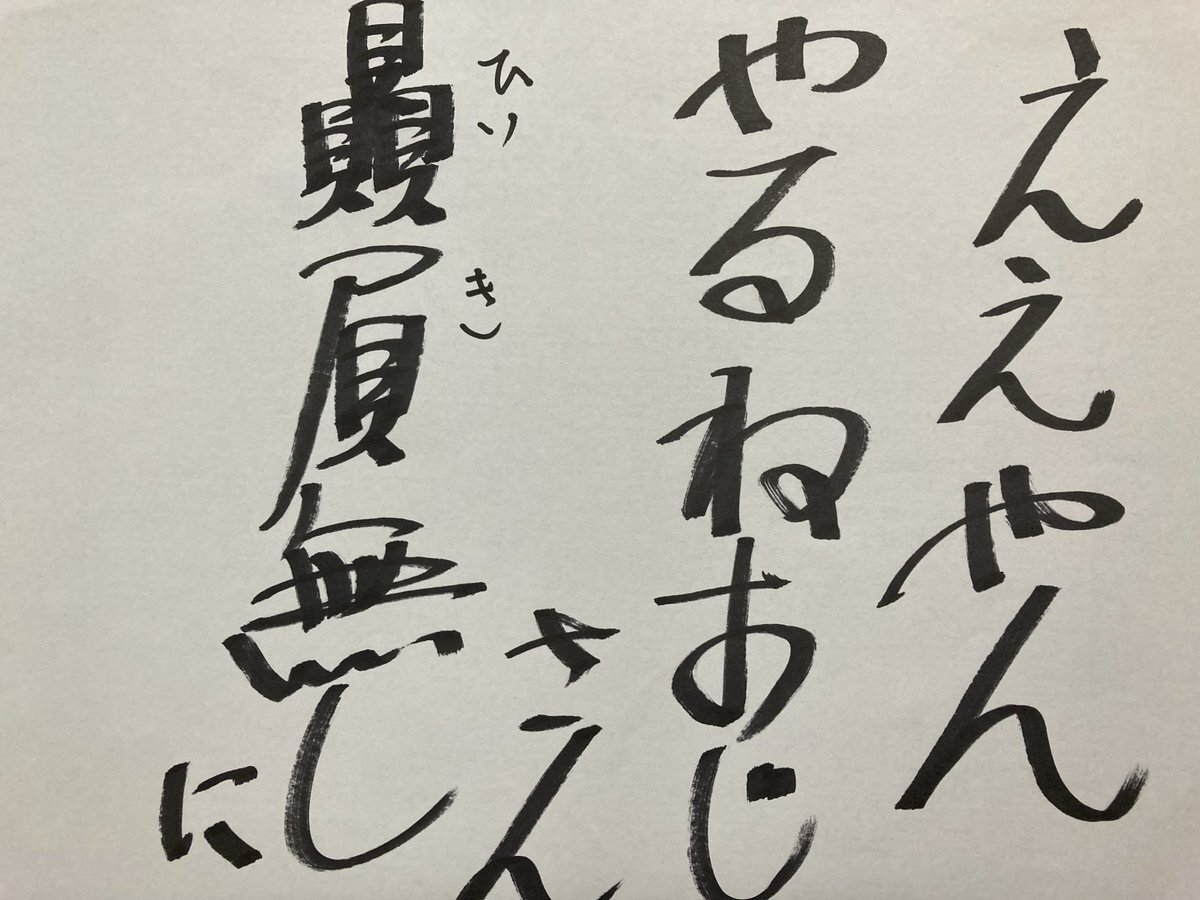 ええやん
やるねおじ
さん
贔屓無し
ひいき
に